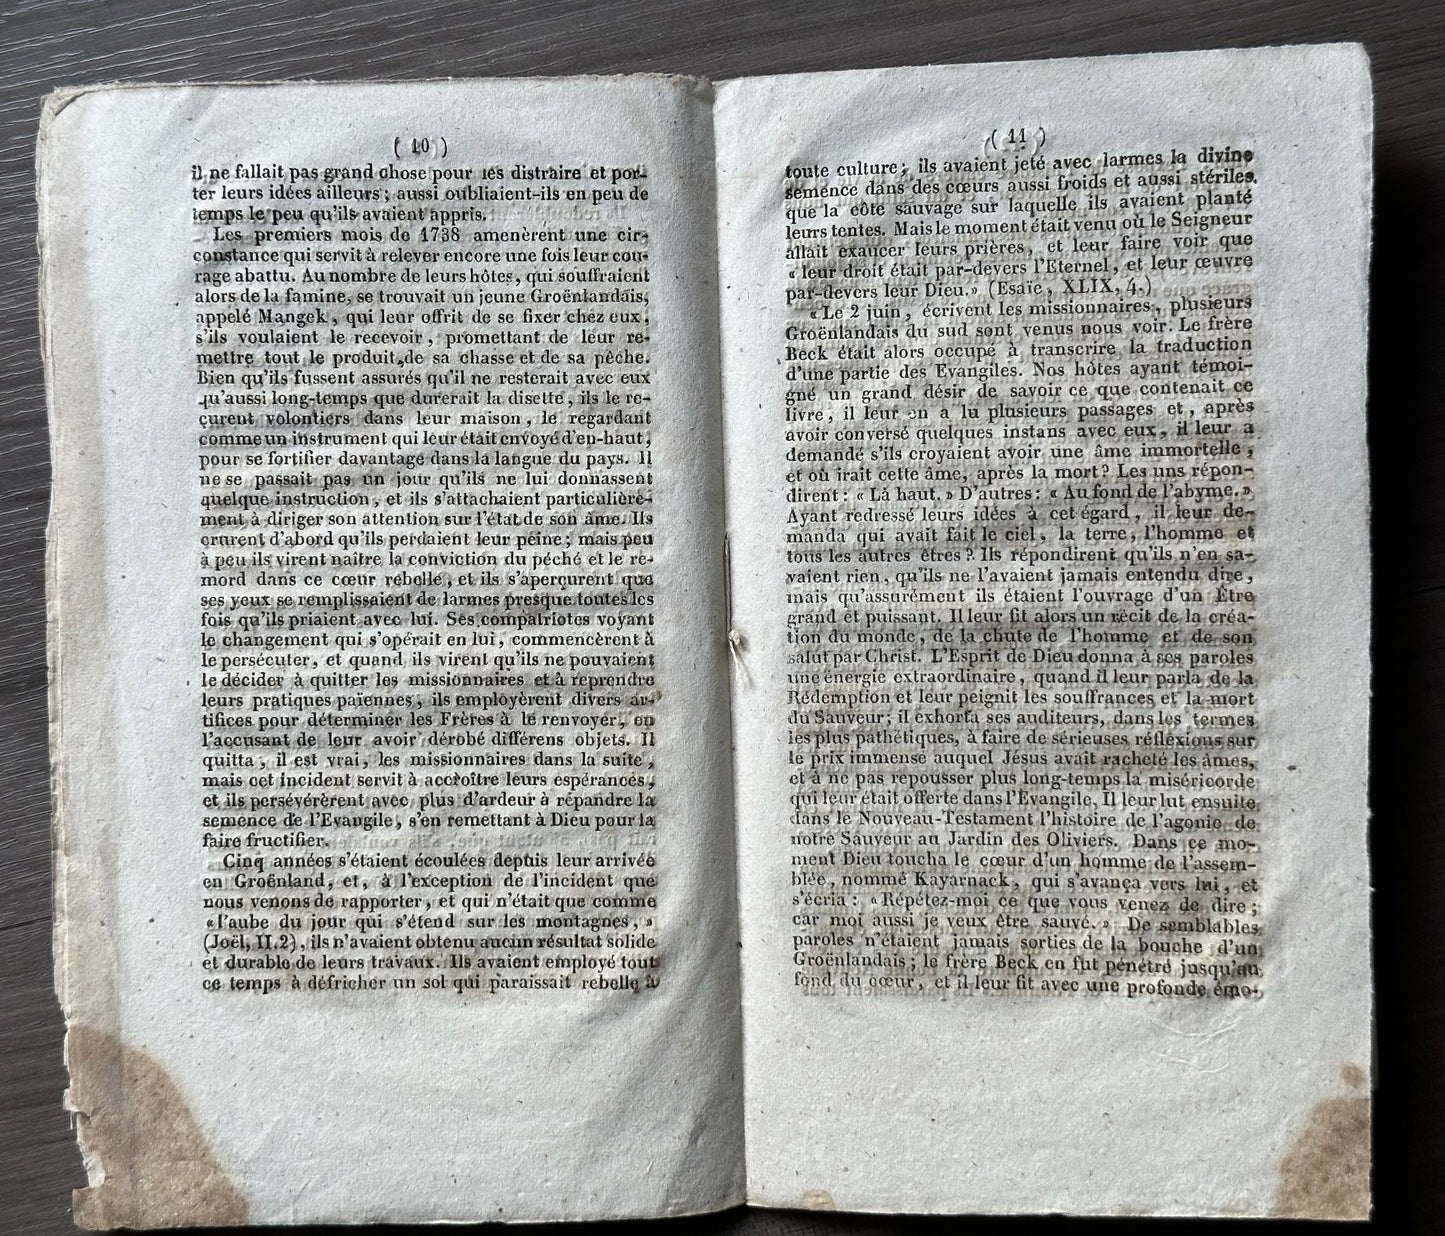 ( 10 )
il ne fallait pas grand chose pour les distraire et por-
ter leurs idées ailleurs ; aussi oubliaient-ils en peu de
temps le peu qu'ils avaient appris.
Les premiers mois de 1738 amenèrent une cir-
constance qui servit à relever encore une fois leur cou-
rage abattu. Au nombre de leurs hôtes, qui souffraient
alors de la famine, se trouvait un jeune Groënlandais,
appelé Mangek, qui leur offrit de se fixer chez eux,
s'ils voulaient le recevoir, promettant de leur re-
mettre tout le produit de sa chasse et de sa pêche.
Bien qu'ils fussent assurés qu'il ne resterait avec eux
qu'aussi long-temps que durerait la disette, ils le re-
çurent volontiers dans leur maison, le regardant
comme un instrument qui leur était envoyé d'en-haut,
pour se fortifier davantage dans la langue du pays. Il
ne se passait pas un jour qu'ils ne lui donnassent
quelque instruction, et ils s'attachaient particulière-
ment à diriger son attention sur l'état de son âme. Ils
crurent d'abord qu'ils perdaient leur peine ; mais peu
à peu ils virent naître la conviction du péché et le re-
mord dans ce cœur rebelle, et ils s'aperçurent que
ses yeux se remplissaient de larmes presque toutes les
fois qu'ils priaient avec lui. Ses compatriotes voyant
le changement qui s'opérait en lui, commencèrent à
le persécuter, et quand ils virent qu'ils ne pouvaient
le décider à quitter les missionnaires et à reprendre
leurs pratiques païennes, ils employèrent divers ar-
tifices pour déterminer les Frères à le renvoyer, en
l'accusant de leur avoir dérobé différens objets. Il
quitta, il est vrai, les missionnaires dans la suite,
mais cet incident servit à accroître leurs espérances,
et ils persévérèrent avec plus d'ardeur à répandre la
semence de l'Evangile, s'en remettant à Dieu pour la
faire fructifier.
Cinq années s'étaient écoulées depuis leur arrivée
en Groënland, et, à l'exception de l'incident que
nous venons de rapporter, et qui n'était que comme
« l'aube du jour qui s'étend sur les montagnes, »
(Joël, II.2), ils n'avaient obtenu aucun résultat solide
et durable de leurs travaux. Ils avaient employé tout
ce temps à défricher un sol qui paraissait rebelle à
( 11 )
toute culture ; ils avaient jeté avec larmes la divine
semence dans des cœurs aussi froids et aussi stériles
que la côte sauvage sur laquelle ils avaient planté
leurs tentes. Mais le moment était venu où le Seigneur
allait exaucer leurs prières, et leur faire voir que
« leur droit était par-devers l'Eternel, et leur œuvre
par-devers leur Dieu. » (Esaïe, XLIX, 4.)
« Le 2 juin, écrivent les missionnaires, plusieurs
Groënlandais du sud sont venus nous voir. Le frère
Beck était alors occupé à transcrire la traduction
d'une partie des Evangiles. Nos hôtes ayant témoi-
gné un grand désir de savoir ce que contenait ce
livre, il leur en a lu plusieurs passages et, après
avoir conversé quelques instans avec eux, il leur a
demandé s'ils croyaient avoir une âme immortelle,
et où irait cette âme, après la mort ? Les uns répon-
dirent : « Là haut. » D'autres : « Au fond de l'abyme. »
Ayant redressé leurs idées à cet égard, il leur de-
manda qui avait fait le ciel, la terre, l'homme et
tous les autres êtres ? Ils répondirent qu'ils n'en sa-
vaient rien, qu'ils ne l'avaient jamais entendu dire,
mais qu'assurément ils étaient l'ouvrage d'un Etre
grand et puissant. Il leur fit alors un récit de la créa-
tion du monde, de la chute de l'homme et de son
salut par Christ. L'Esprit de Dieu donna à ses paroles
une énergie extraordinaire, quand il leur parla de la
Rédemption et leur peignit les souffrances et la mort
du Sauveur ; il exhorta ses auditeurs, dans les termes
les plus pathétiques, à faire de sérieuses réflexions sur
le prix immense auquel Jésus avait racheté les âmes,
et à ne pas repousser plus long-temps la miséricorde
qui leur était offerte dans l'Evangile. Il leur lut ensuite
dans le Nouveau-Testament l'histoire de l'agonie de
notre Sauveur au Jardin des Oliviers. Dans ce mo-
ment Dieu toucha le cœur d'un homme de l'assem-
blée, nommé Kayarnack, qui s'avança vers lui, et
s'écria : « Répétez-moi ce que vous venez de dire ;
car moi aussi je veux être sauvé. » De semblables
paroles n'étaient jamais sorties de la bouche d'un
Groënlandais ; le frère Beck en fut pénétré jusqu'au
fond du cœur, et il leur fit avec une profonde émo-